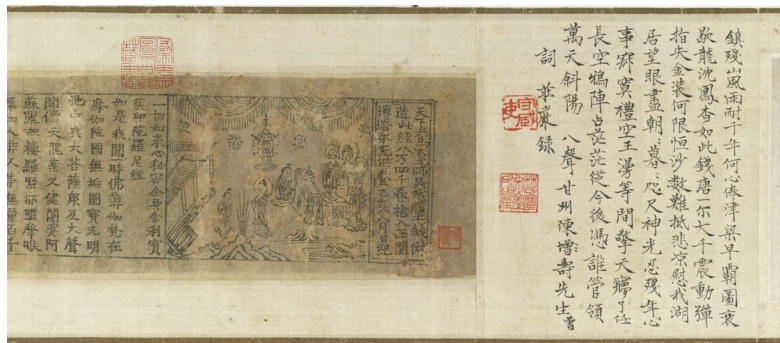 鎮殘山風雨耐千年何心倦津梁早霸圖衰
歇龍沈鳳杳如此錢唐一尔大千震動彈
指失金裝何限恒沙數難抵悲涼慰我湖
居望眼盡朝〻暮〻咫尺神光忍殘年心
事寂寞禮空王漫等間擎天夢了任
長空鴉陣占茫茫從今後憑誰管領
萬天斜陽 八聲甘州陳增壽先生曾
詞 莊嚴録
天下兵馬大元帥吳越國王錢俶
造此經八万四千卷捨入西關
塼塔永充供養乙亥八月日紀
一切如來心秘密全身舍利寶
篋印陀羅尼經
如是我聞一時佛薄伽梵在
摩伽陀國無垢園寶光明
池中與大菩薩衆及大聲
聞僧天龍藥叉健闥婆阿
蘇羅迦樓羅緊那羅摩睺
羅伽人非人等無量百千